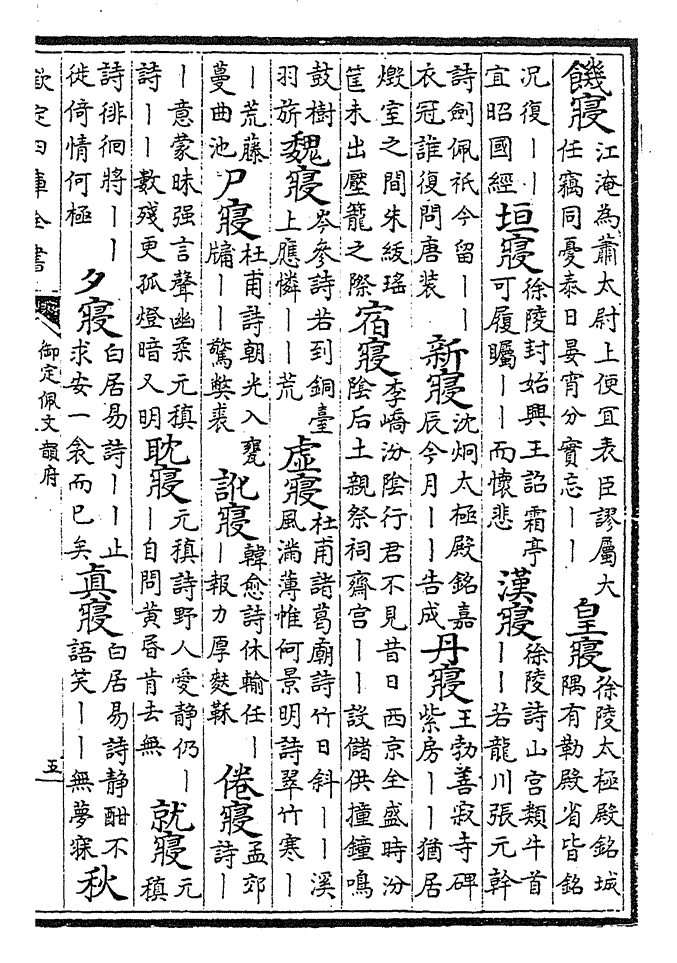 饑寢江淹為蕭太尉上便宜表臣謬屬大任竊同憂泰日晏宵分實忘――皇寢徐陵太極殿銘城隅有勒殿省皆銘
況復――宜昭國經垣寢徐陵封始興王詔霜亭可履矚――而懷悲漢寢徐陵詩山宮類牛首――若龍川張元幹
詩劍佩祇今留――衣冠誰復問唐装新寢沈炯太極殿銘嘉辰今月――告成丹寢王勃善寂寺碑紫房――猶居
燬室之間朱綬瑤筐未出壓籠之際宿寢李嶠汾陰行君不見昔日西京全盛時汾陰后土親祭祠齋宮――設儲供撞鐘鳴
鼓樹羽旂魏寢岑參詩若到銅臺上應憐――荒虛寢杜甫諸葛廟詩竹日斜――溪風滿薄惟何景明詩翠竹寒―
―荒藤蔓曲池尸寢杜甫詩朝光入甕牖――驚獘裘訛寢韓愈詩休輸任―報力厚麩䴴倦寢孟郊詩―
―意蒙昧强言聲幽柔元稹詩――數殘更孤燈暗又明耽寢元稹詩野人愛静仍――自問黄昏肯去無就寢元稹
詩徘徊將――徙倚情何極夕寢白居易詩――止求安一衾而已矣真寢白居易詩静酣不語笑――無夢寐秋
欽定四庫全書
御定佩文韻府
五